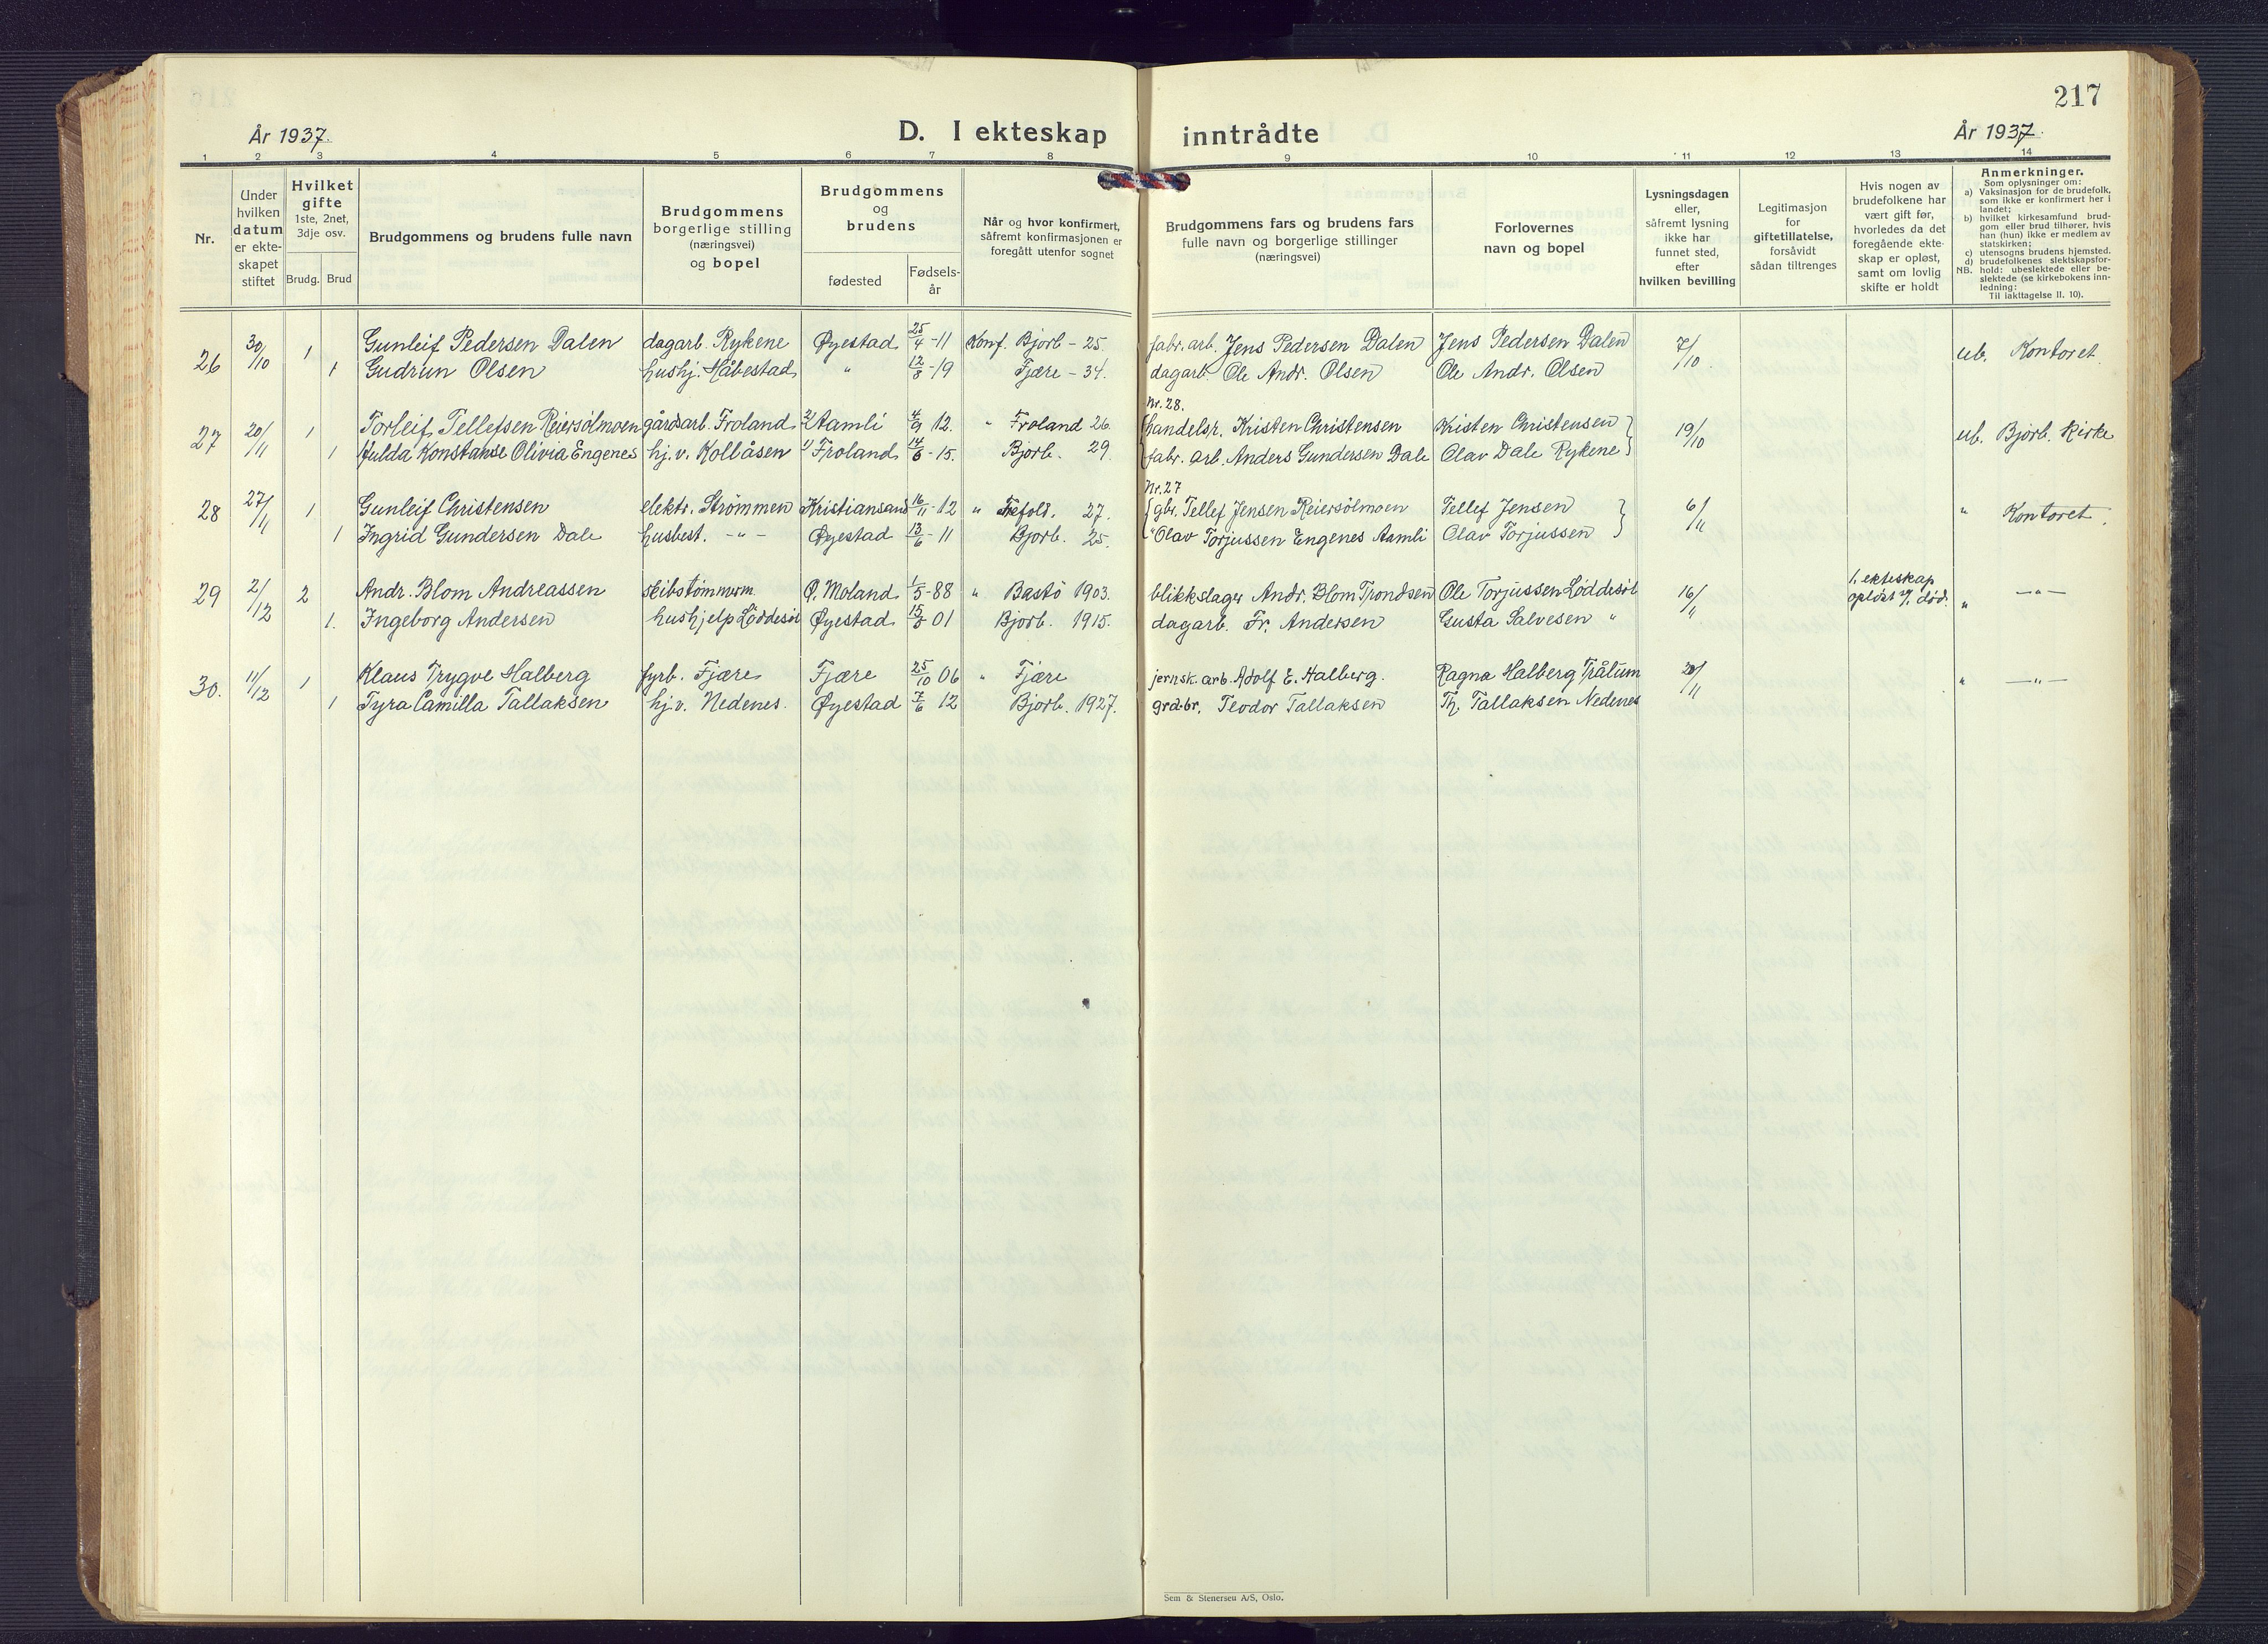 217
År 1937.
D. I ekteskap inntrådte
År 1937.
1 2 3 4 5 6 7 8 9 10 11 12 13 14
Nr.
Under hvilken datum er ekte-skapet stiftet
Hvilket gifte 1ste, 2net, 3dje osv.
Brudg. Brud
Brudgommens og brudens fulle navn
Brudgommens borgerlige stilling (næringsvei) og bopel
Brudgommens og brudens
fødested
Fødsels-år
Når og hvor konfirmert, såfremt konfirmasjonen er foregått utenfor sognet
Brudgommens fars og brudens fars fulle navn og borgerlige stillinger (næringsvei)
Forlovernes navn og bopel
Lysningsdagen eller, såfremt lysning ikke har funnet sted, efter hvilken bevilling
Legitimasjon for giftetillatelse, forsåvidt sådan tiltrenges
Hvis nogen av brudefolkene har vært gift før, hvorledes da det foregående ekte-skap er opløst, samt om lovlig skifte er holdt
Anmerkninger.
Som oplysninger om:
a) Vaksinasjon for de brudefolk, som ikke er konfirmert her i landet;
b) hvilket kirkesamfund brud-gom eller brud tilhører, hvis han (hun) ikke er medlem av statskirken;
c) utensogns brudens hjemsted.
d) brudefolkenes slektskapsfor-
NB. hold: ubeslektede eller be-slektede (se kirkebokens inn-ledning:
Til iakttagelse II. 10).
26 30/10 1 Gunleif Pedersen Dalen dagarb. Rykene Øyestad 25/4-11 Konf. Bjorb - 25. fabr. arb. Jens Pedersen Dalen Jens Pedersen Dalen 7/10 ub. Kontoret.
1 Gudrun Olsen hushj. Håbestad " 12/8-19 Fjære - 34. dagarb. Ole Andr. Olsen Ole Andr. Olsen
Nr. 28.
27 20/11 1 Torleif Tellefsen Reiersølmoen gårdsarb. Froland 2) Aamli 4/9 12. " Froland 26. handelsr. Kristen Christensen Kristen Christensen 19/10 ub. Bjorb. Kirke
1 Hulda Konstanse Olivia Engenes hj. v. Kollåsen 1) Froland 14/6-15. Bjorb. 29. fabr. arb. Anders Gundersen Dale Olav Dale Rykene
Nr. 27
28 27/11 1 Gunleif Christensen elektr. Strømmen Kristiansand 16/11-12 " Trefold. 27. gbr. Tellef Jensen Reiersølmoen Tellef Jensen 6/11 " Kontoret.
1 Ingrid Gundersen Dale husbest. -"- Øyestad 13/6-11 Bjorb. 25. " Olav Torjussen Engenes Aamli Olav Torjussen
29 2/12 2 Andr. Blom Andreassen skibstømmerm. Ø. Moland 1/5-88 " Bastö 1903. blikkslager Andr. Blom Trondsen Ole Torjussen Løddesøl 16/11 1. ekteskap opløst død. " -"-
1. Ingeborg Andersen hushjelp Löddesöl Øyestad 15/5 01 Bjorb. 1915. dagarb. Fr. Andersen Gusta Salvesen "
30. 11/12 1 Klaus Trygve Halberg fyrb. Fjære Fjære 25/10 06 " Fjære jernsk. arb. Adolf E. Halberg. Ragna Halberg Tråtum 20/11 " -"-
1 Tyra Camilla Tallaksen hj. v. Nedenes. Øyestad 7/6 12 Bjorb. 1927. grd.br. Teodor Tallaksen Th. Tallaksen Nedenes
Sem & Stenersen A/S, Oslo.